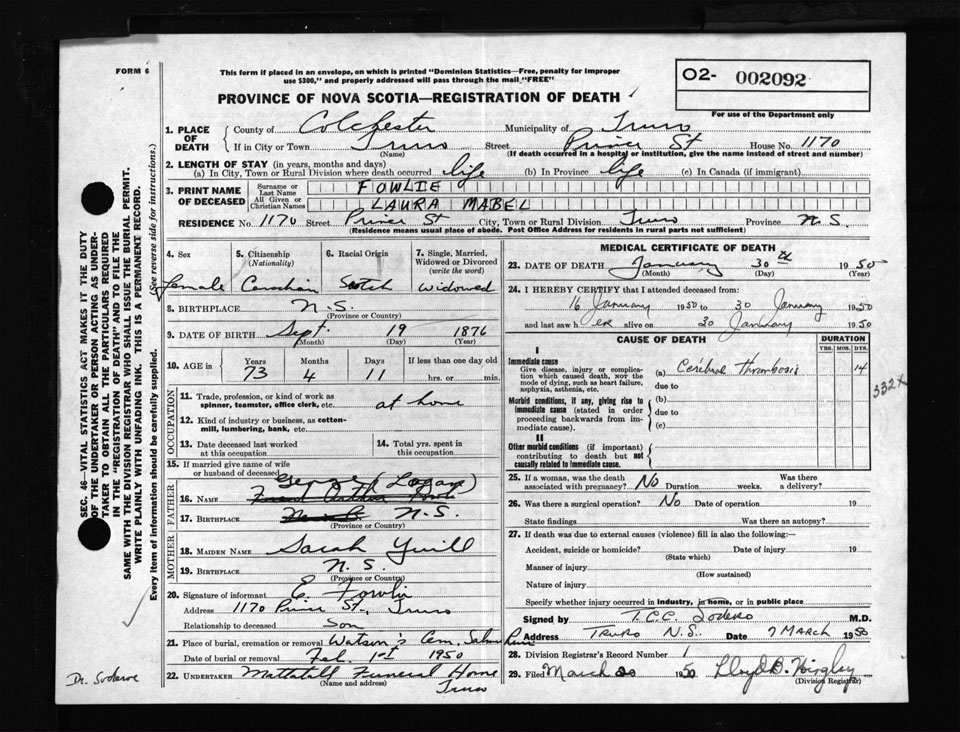 FORM 6
This form if placed in an envelope, on which is printed "Dominion Statistics—Free, penalty for improper
use $300," and properly addressed will pass through the mail "FREE"
O2- 002092
For use of the Department only
PROVINCE OF NOVA SCOTIA—REGISTRATION OF DEATH
1. PLACE OF DEATH County of Colchester Municipality of Truro
If in City or Town Truro Street Prince St House No. 1170
(Name) (If death occurred in a hospital or institution, give the name instead of street and number)
2. LENGTH OF STAY (in years, months and days)
(a) In City, Town or Rural Division where death occurred life (b) In Province life (c) In Canada (if immigrant)
3. PRINT NAME OF DECEASED Surname or Last Name FOWLIE
All Given or Christian Names LAURA MABEL
RESIDENCE No. 1170 Street Prince St City, Town or Rural Division Truro Province N.S.
(Residence means usual place of abode. Post Office Address for residents in rural parts not sufficient)
4. Sex 5. Citizenship (Nationality) 6. Racial Origin 7. Single, Married, Widowed or Divorced (write the word)
female Canadian Scotch Widowed
8. BIRTHPLACE N.S.
(Province or Country)
9. DATE OF BIRTH Sept. 19 1876
(Month) (Day) (Year)
10. AGE in Years Months Days If less than one day old
73 4 11 hrs. or min.
OCCUPATION
11. Trade, profession, or kind of work as
spinner, teamster, office clerk, etc. at home
12. Kind of industry or business, as cotton-
mill, lumbering, bank, etc.
13. Date deceased last worked at this occupation 14. Total yrs. spent in this occupation
15. If married give name of wife
or husband of deceased
FATHER
16. NAME (Logan)
17. BIRTHPLACE N.S.
(Province or Country)
MOTHER
18. MAIDEN NAME Sarah Yuill
19. BIRTHPLACE N.S.
(Province or Country)
20. Signature of informant E. Fowlie
Address 1170 Prince St., Truro
Relationship to deceased Son
21. Place of burial, cremation or removal Watson's Cem. Salmon River
Date of burial or removal Feb. 1st 1950
22. UNDERTAKER Mattatall Funeral Home
(Name and address) Truro
MEDICAL CERTIFICATE OF DEATH
23. DATE OF DEATH January 30th 1950
(Month) (Day) (Year)
24. I HEREBY CERTIFY that I attended deceased from:
16 January 1950 to 30 January 1950
and last saw her alive on 30 January 1950
CAUSE OF DEATH DURATION
YRS. MOS. DYS.
I
Immediate cause
Give disease, injury or complica-
tion which caused death, NOT the
mode of dying, such as heart failure,
asphyxia, asthenia, etc.
(a) Cerebral Thrombosis 14
due to
332X
Morbid conditions, if any, giving rise to
immediate cause (stated in order
proceeding backwards from im-
mediate cause).
(b)
due to
(c)
II
Other morbid conditions (if important)
contributing to death but not
causally related to immediate cause.
25. If a woman, was the death
associated with pregnancy? No Duration weeks. Was there a delivery?
26. Was there a surgical operation? No Date of operation 19
State findings Was there an autopsy?
27. If death was due to external causes (violence) fill in also the following:—
Accident, suicide or homicide? Date of injury 19
(State which)
Manner of injury
(How sustained)
Nature of injury
Specify whether injury occurred in industry, in home, or in public place
Signed by T.C.C. Sodero M.D.
Address Truro N.S. Date 7 March 1950
28. Division Registrar's Record Number 1
29. Filed March 1950 Lloyd B. Higgley
(Division Registrar)
SEC. 46—VITAL STATISTICS ACT MAKES IT THE DUTY
OF THE UNDERTAKER OR PERSON ACTING AS UNDER-
TAKER TO OBTAIN ALL THE PARTICULARS REQUIRED
IN THE "REGISTRATION OF DEATH" AND TO FILE THE
SAME WITH THE DIVISION REGISTRAR WHO SHALL ISSUE THE BURIAL PERMIT.
WRITE PLAINLY WITH UNFADING INK. THIS IS A PERMANENT RECORD.
Every item of information should be carefully supplied. (See reverse side for instructions.)
Dr. Soderoe